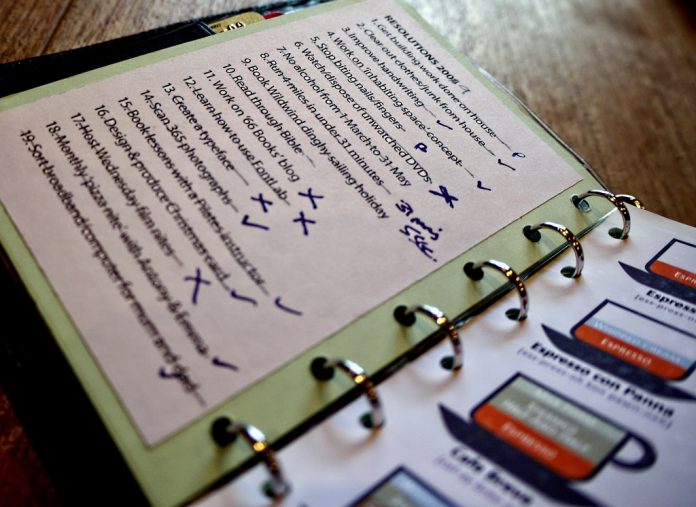 RESOLUTIONS 2008
1. Get building work done on house P
2. Clear out clothes/junk from house ✓
3. Improve handwriting ✓
4. Work on 'inhabiting space' concept ✓
5. Stop biting nails/fingers P
6. Watch/dispose of unwatched DVDs
7. No alcohol from 1 March to 31 May X
8. Run 4 miles in under 31 minutes 31 min
9. Book Wildwind dinghy sailing holiday
10. Read through Bible
11. Work on '66 Books' blog X
12. Learn how to use FontLab X
13. Create a typeface X
14. Scan 365 photographs ✓
15. Book lessons with a Pilates instructor ✓
16. Design & produce Christmas card ✓
17. Host Wednesday film nites X
18. Monthly 'pizza nite' with Antony & Emma ✓
19. Sort broadband/computer for mum and dad ✓
Espresso con Panna
Whipped Cream
Espresso
Espresso